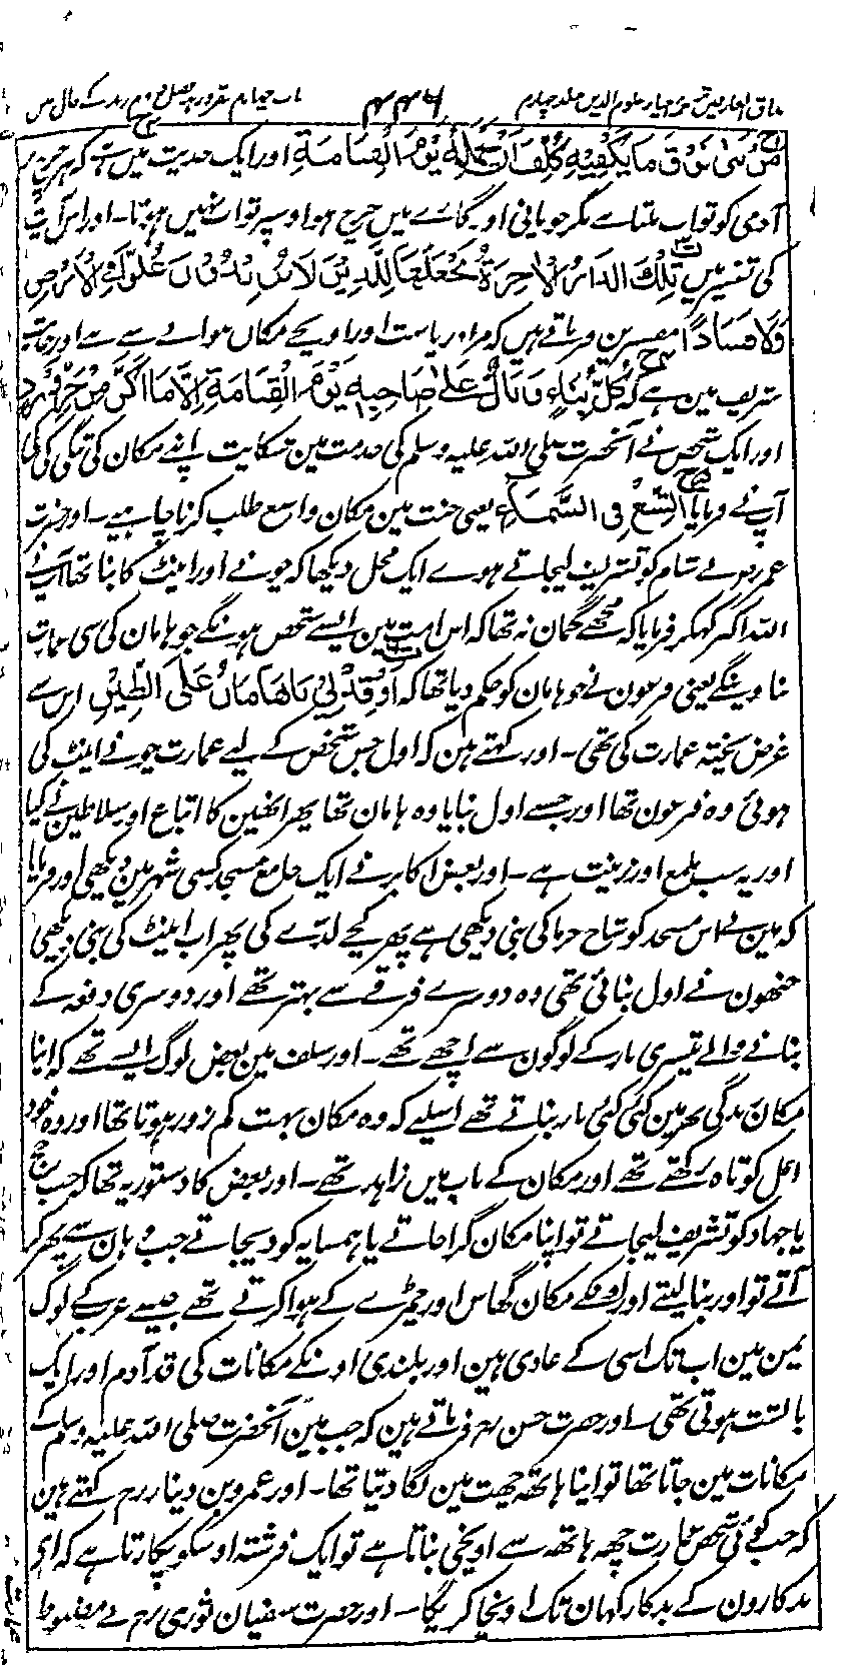 مذاق العارفین ترجمہ احیاء علوم الدین جلد چہارم ۴۴۶ باب چہارم فقر و زہد فصل دوم زہد کے حال میں
مَنْ بَنٰی فَوْقَ مَا یَکْفِیْہِ کُلِّفَ اَنْ یَحْمِلَہٗ یَوْمَ الْقِیَامَۃِ اور ایک حدیث میں ہے کہ ہر خرچ پر
آدمی کو ثواب ملتا ہے مگر جو پانی اور گارے میں خرچ ہو اوسپر ثواب نہیں ہوتا۔ اور اس آیت
کی تفسیر میں تِلْکَ الدَّارُ الْاٰخِرَۃُ نَجْعَلُھَا لِلَّذِیْنَ لَا یُرِیْدُوْنَ عُلُوًّا فِی الْاَرْضِ
وَلَا فَسَادًا مفسرین فرماتے ہیں کہ مراد ریاست اور اونچے مکان بنوانے سے ہے اور حدیث
شریف مین ہے کہ کُلُّ بِنَاءٍ وَبَالٌ عَلٰی صَاحِبِہٖ یَوْمَ الْقِیَامَۃِ اِلَّا مَا اَکَنَّ مِنْ حَرٍّ وَّ بَرْدٍ
اور ایک شخص نے آنحضرت صلی اللہ علیہ وسلم کی خدمت مین شکایت اپنے مکان کی تنگی کی کی
آپ نے فرمایا اِتَّسِعْ فِی السَّمَاءِ یعنی جنت مین مکان واسع طلب کرنا چاہیے۔ اور حضرت
عمر رضہ نے شام کو تشریف لیجاتے ہوے ایک محل دیکھا کہ چونے اور اینٹ کا بنا تھا آپ نے
اللہ اکبر کہکر فرمایا کہ مجھے گمان نہ تھا کہ اس امت مین ایسے شخص ہونگے جو ہامان کی سی عمارت
بناوینگے یعنی فرعون نے جو ہامان کو حکم دیا تھا کہ اَوْقِدْ لِیْ یَا ھَامَانُ عَلَی الطِّیْنِ اس سے
غرض پختہ عمارت کی تھی۔ اور کہتے ہین کہ اول جس شخص کے لیے عمارت چونے اینٹ کی
ہوئی وہ فرعون تھا اور جسنے اول بنایا وہ ہامان تھا پھر انھین کا اتباع اور سلاطین نے کیا
اور یہ سب ملمع اور زینت ہے۔ اور بعض اکابر نے ایک جامع مسجد کسی شہر مین دیکھی اور فرمایا
کہ مین نے اس مسجد کو شاخ خرما کی بنی دیکھی ہے پھر کچے لدّے کی پھر اب اینٹ کی بنی دیکھی
جنھون نے اول بنائی تھی وہ دوسرے فرقے سے بہتر تھے اور دوسری دفعہ کے
بنانے والے تیسری بار کے لوگون سے اچھے تھے۔ اور سلف مین بعض لوگ ایسے تھے کہ اپنا
مکان زندگی بھر مین کئی کئی بار بناتے تھے اسلیے کہ وہ مکان بہت کم زور ہوتا تھا اور وہ خود
امل کوتاہ رکھتے تھے اور مکان کے باب میں زاہد تھے۔ اور بعض کا دستور یہ تھا کہ جب حج
یا جہاد کو تشریف لیجاتے تو اپنا مکان گرا جاتے یا ہمسایہ کو دیجاتے جب وہان سے پھر کر
آتے تو اور بنا لیتے اور اونکے مکان گھاس اور چمڑے کے ہوا کرتے تھے جیسے عرب کے لوگ
یمن مین اب تک اسی کے عادی ہین اور بلندی اونکے مکانات کی قد آدم اور ایک
بالشت ہوتی تھی۔ اور حضرت حسن رح فرماتے ہین کہ جب مین آنحضرت صلی اللہ علیہ وسلم کے
مکانات مین جاتا تھا تو اپنا ہاتھ چھت مین لگا دیتا تھا۔ اور عمرو بن دینار رح کہتے ہین
کہ جب کوئی شخص عمارت چھہ ہاتھ سے اونچی بناتا ہے تو ایک فرشتہ اوسکو پکارتا ہے کہ اے
بدکارون کے بدکار کہان تک اونچا کریگا۔ اور حضرت سفیان ثوری رح نے مضبوط